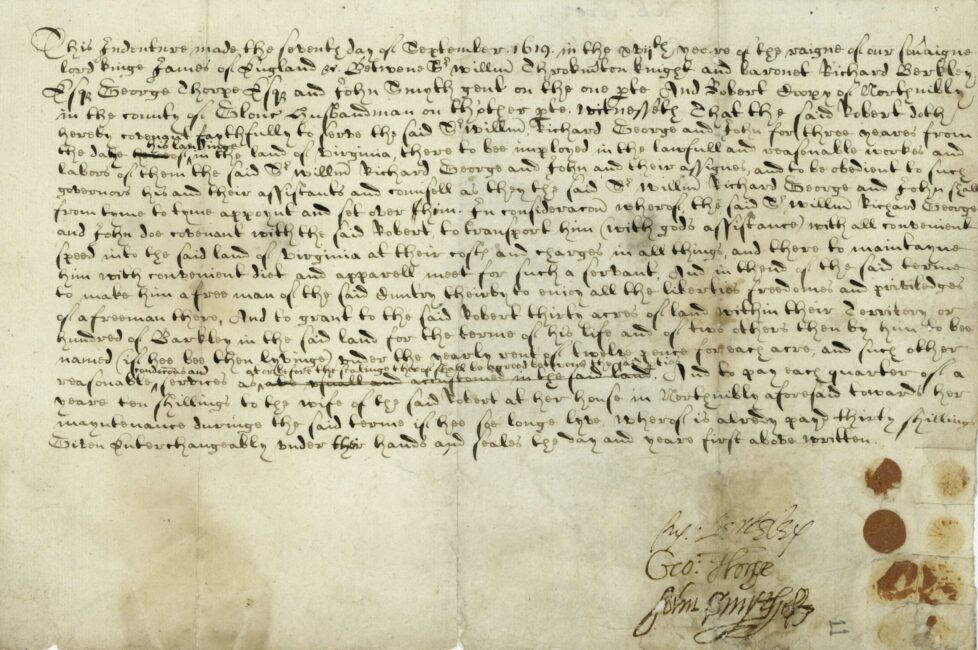 This Indenture made the seventh day of September. 1619. in the xvijth yeare of the raigne of our souaigne
lord kinge James of England &c. Betwene Sr. Willm Throkmton knight and baronet Richard Berkley
Esqr George Thorpe Esqr and John Smyth gent on the one pte And Robert Coopy of Northnibly
in the county of Glouc husbandman on thother pte. Witnesseth That the said Robert doth
hereby covenant faythfully to serve the said Sr. Willm, Richard George and John for three yeares from
the daye of his landinge in the land of Virginia, there to bee imployed in the lawfull and reasonable workes and
labors of them the said Sr. Willm Richard George and John and their assignes, and to be obedient to such
governors his and their assistants and counsell as they the said Sr Willm Richard George and John shall
from tyme to tyme appoynt and set over him. In consideracon wherof, the said Sr. Willm Richard George
and John doe covenant with the said Robert to transport him (with gods assistance) with all convenient
speed into the said land of Virginia at their costs and charges in all things, and there to maintayne
him with convenient diet and apparell meet for such a servant, And in thend of the said terme
to make him a free man of the said Cuntry theirby to enioy all the liberties freedomes and priviledges
of a freeman there, And to grant to the said Robert thirty acres of land within their Territory or
hundred of Barkley in the said land for the terme of his life and of two others then by him to bee
named (if hee bee then lyvinge) vnder the yearly rent of twelve pence for each acre, and such other
condicons and at or before the sealinge therof shalbe agreed
reasonable services as are vsuall and accustomed in the said land. And to pay each quarter of a
yeare ten shillings to the wife of the said Robert at her house in Northnibly aforesaid towards her
mayntenance duringe the said terme if hee soe longe lyve, wherof is already payd thirty shillings
Given Interchangeably vnder their hands and seales the day and yeare first above written.
Geo: Thorpe
John Smyth